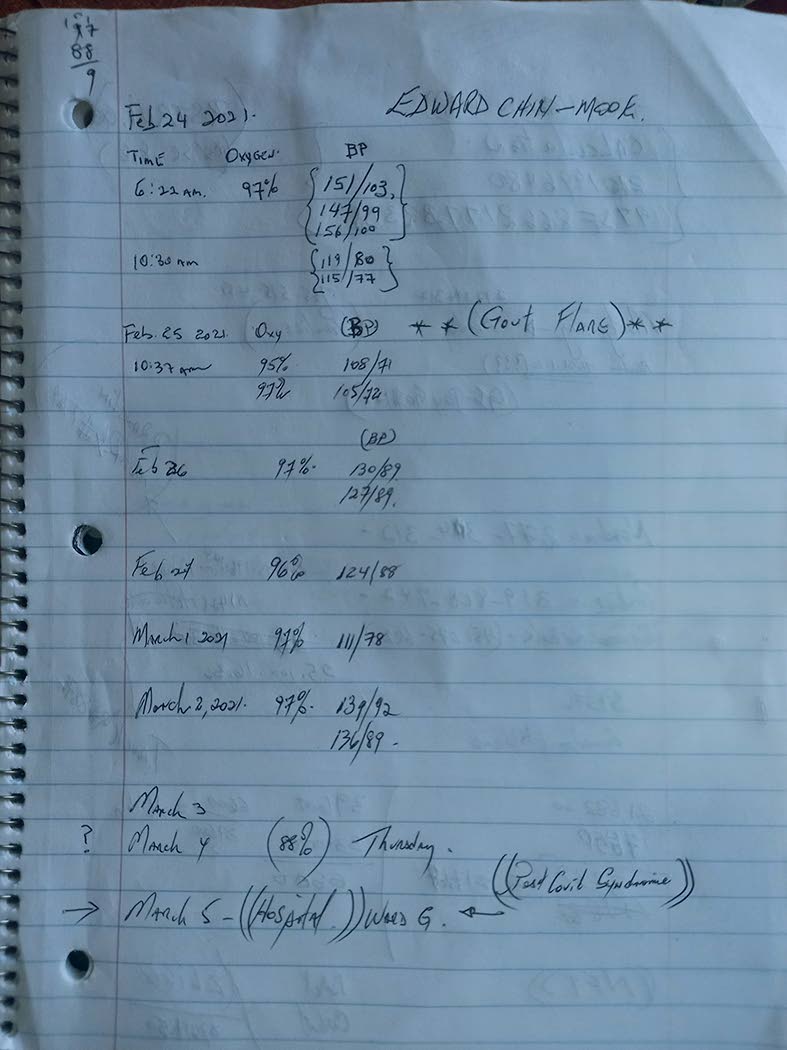 197
88
9
EDWARD CHIN-MOOK.
Feb 24 2021.
TIME OXYGEN. BP
6:22 AM. 97% {151/103,
147/99
156/100}
10:30 am {119/80
115/77}
Feb. 25 2021. Oxy (BP) * * (Gout Flare) * *
10:37 am 95% 108/71
97% 105/72
(BP)
Feb 26 97%. 130/89
127/89.
Feb 27 96% 124/88
March 1 2021 97% 111/78
March 2, 2021. 97%. 139/92
136/89.
March 3
? March 4 (88%) Thursday.
((Post Covit Syndrome))
→ March 5 - ((Hospital.)) Ward G. ←